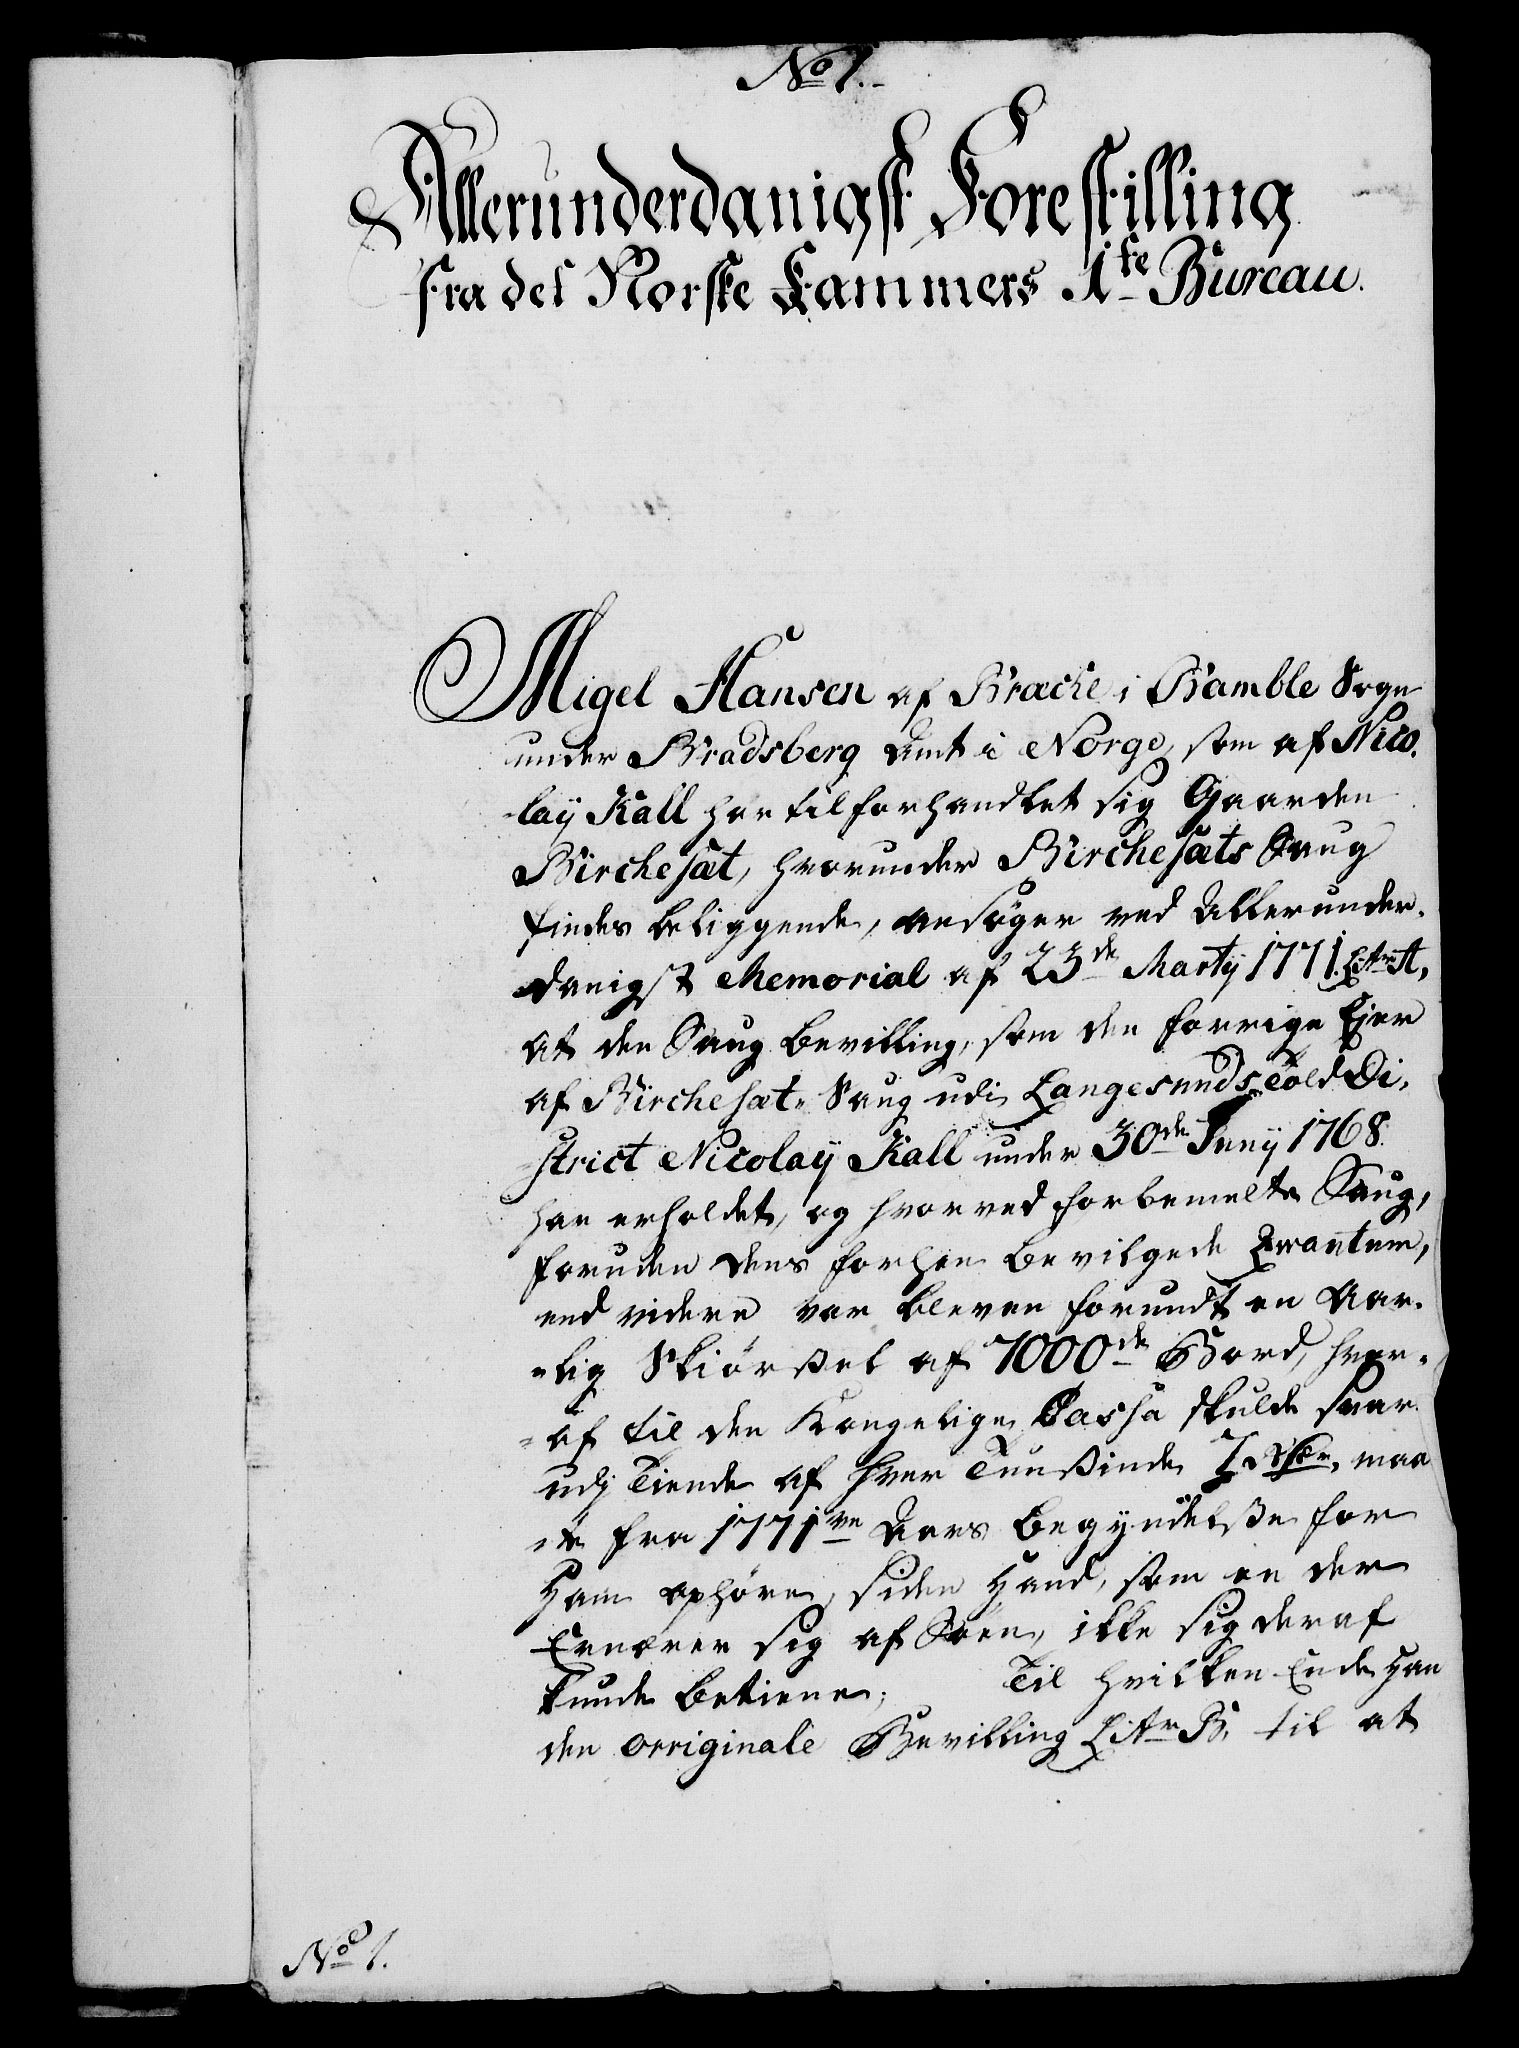 No 1.
Allerunderdanigst Forestilling
fra det Norske Kammers 1te Bureau.
Migel Hansen af Bræche i Bamble Sogn
under Bradsberg Amt i Norge, som af Nico-
lay Kall har tilforhandlet sig Gaarden
Birchesæt, hvorunder Birchesæts Saug
findes beliggende, ansøger ved Allerunder-
danigst Memorial af 23de Marty 1771. Litr. A,
at den Saug Bevilling, som den forrige Ejer
af Birchesæt Saug udi Langesunds Told Di-
strict Nicolay Kall under 30de Juny 1768.
har erholdet, og hvorved forbemelte Saug,
foruden dens forhen bevilgede Qvantum,
end videre var bleven forundt en Aar-
lig Skiørsel af 7000de Bord, hvor-
af til den Kongelige Cassa skulde svar
udj Tiende af hver Tuusinde 7 , maa
te fra 1771ve Aars Begyndelse for
Ham ophøre, siden Hand, som en der
Ernærer sig af Søen, ikke sig deraf
kunde betiene; Til hvilken Ende Han
den originale Bevilling Litr B. til at
No 1.